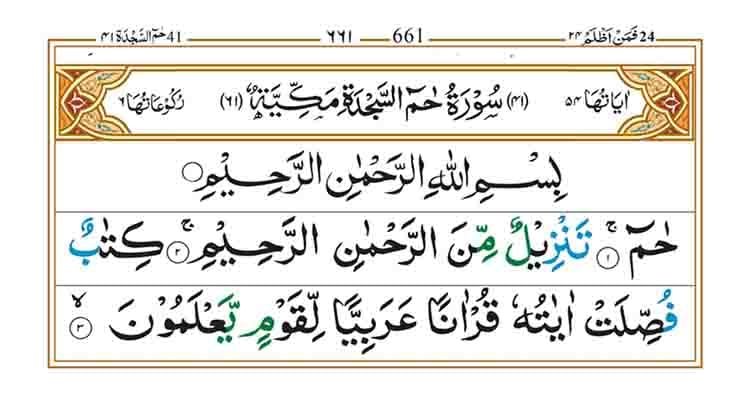 ٢٤ فَمَنْ اَظْلَم 24 661 ٦٦١ حٰمٓ السَّجْدَة ٤١ 41
اٰيَاتُهَا ٥٤ (٤١) سُوْرَةُ حٰمٓ السَّجْدَةِ مَكِّيَّةٌ (٦١) رُكُوْعَاتُهَا ٦
بِسْمِ اللّٰهِ الرَّحْمٰنِ الرَّحِيْمِ
حٰمٓ ۚ ﴿١﴾ تَنْزِيْلٌ مِّنَ الرَّحْمٰنِ الرَّحِيْمِ ۚ ﴿٢﴾ كِتٰبٌ
فُصِّلَتْ اٰيٰتُهٗ قُرْاٰنًا عَرَبِيًّا لِّقَوْمٍ يَّعْلَمُوْنَ ۙ ﴿٣﴾